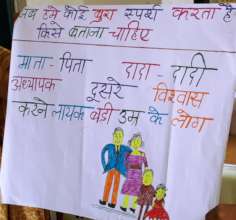 जब हमे कोई बुरा स्पर्श करता है
किसे बताना चाहिए
माता - पिता दादा - दादी
अध्यापक दूसरे विश्वास
करने लायक बडी उम्र के लोग